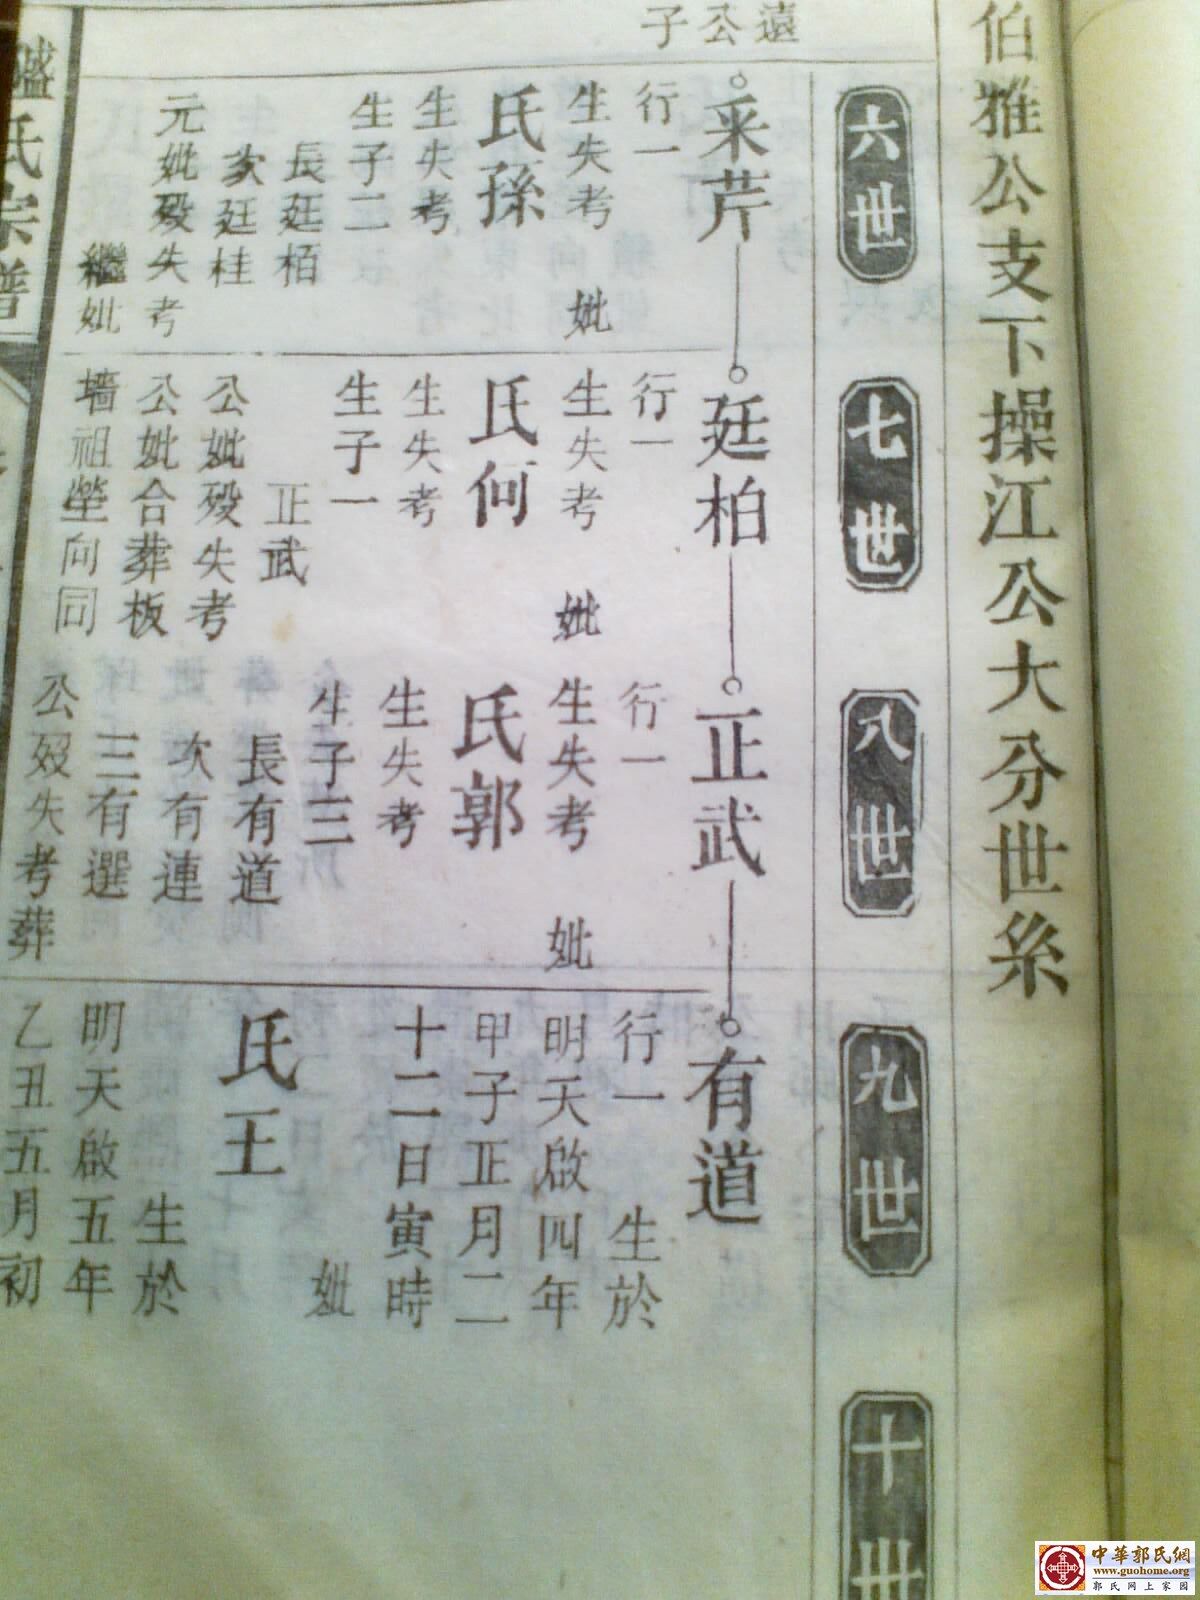 伯雅公支下操江公大分世系
六世
七世
八世
九世
十世
遠公子
采芹
行一
生失考 妣
氏孫
生失考
生子二
長廷栢
次廷桂
元妣殁失考
繼妣
廷柏
行一
生失考 妣
氏何
生失考
生子一
正武
公妣殁失考
公妣合葬板
墙祖塋向同
正武
行一
生失考 妣
氏郭
生失考
生子三
長有道
次有連
三有選
公殁失考葬
有道
行一 生於
明天啟四年
甲子正月二
十二日寅時
妣
氏王
生於
明天啟五年
乙丑五月初
氏宗譜
中華郭氏網
www.guohome.org
郭氏网上家园